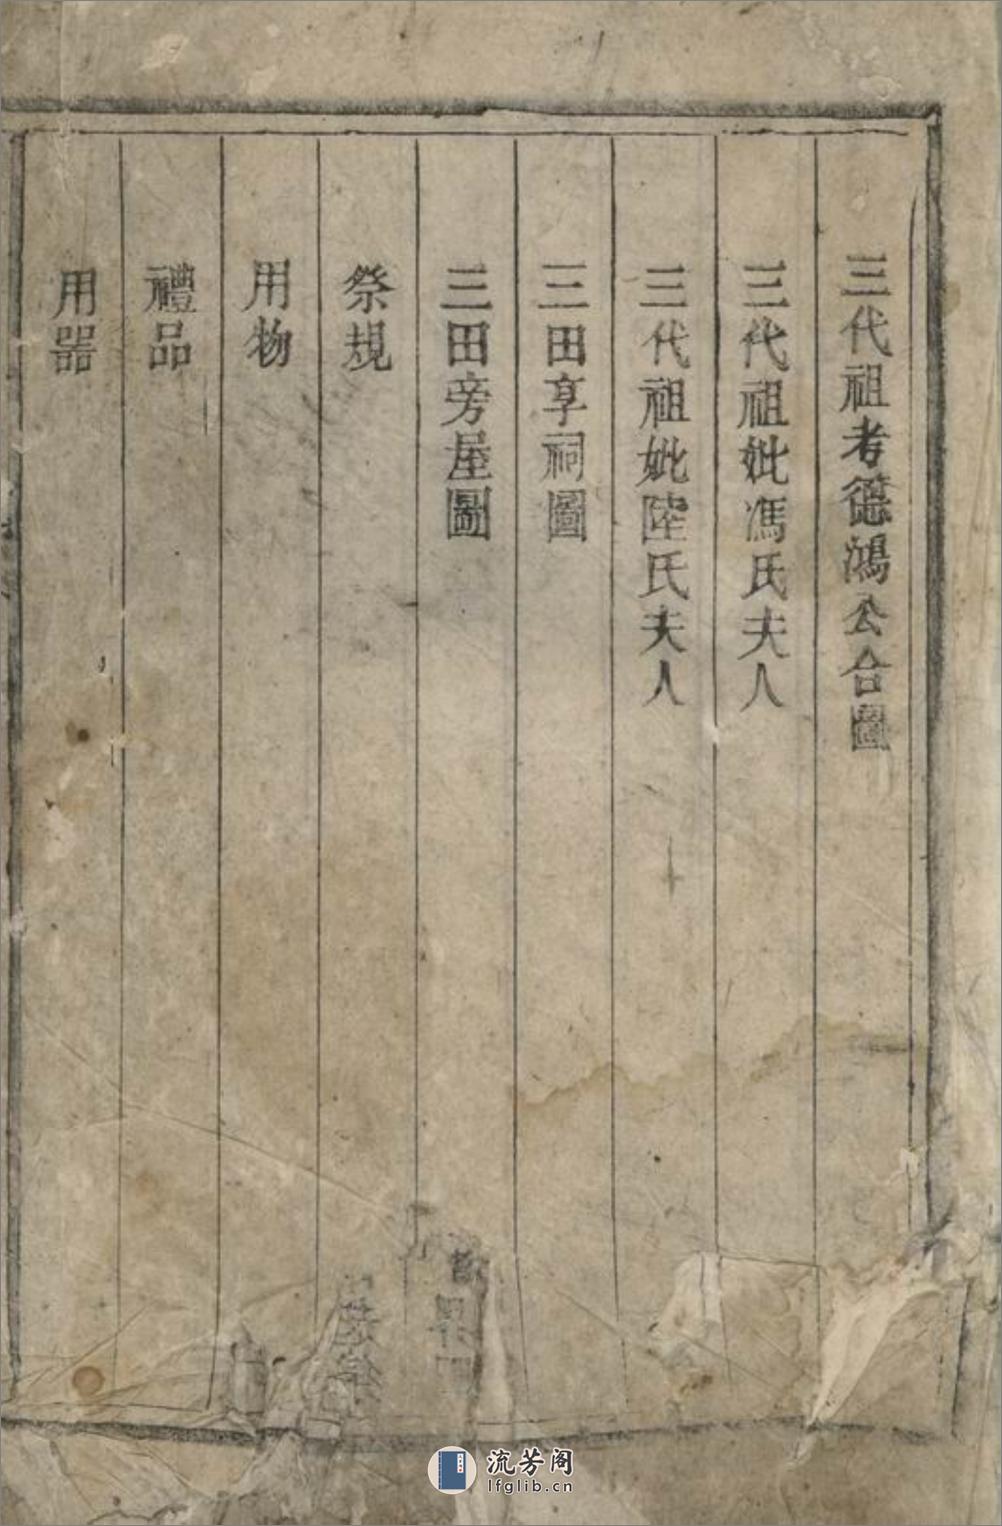 三代祖考德鴻公合圖
三代祖妣馮氏夫人
三代祖妣陸氏夫人
三田享祠圖
三田旁屋圖
祭規
用物
禮品
用器
流芳阁
lfglib.cn